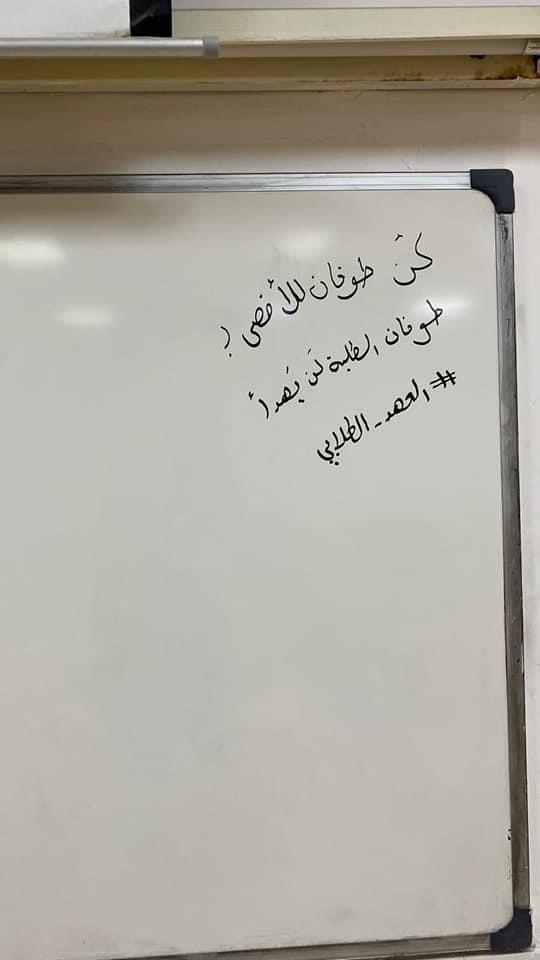 كَن طوفان للأقصى !
طوفان الطلبة لَن يَهدأ
#العهد_الطلابي